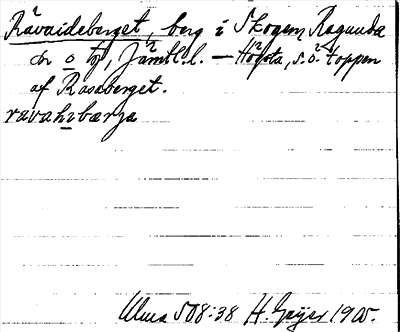 Rävaideberget, berg i Skogen, Ragunda
sn o tg, Jämtl. l. — Högsta, s.ö. toppen
af Rasaberget.
ravahɩbarja
Ulma 508:38 H. Geijer 1905.